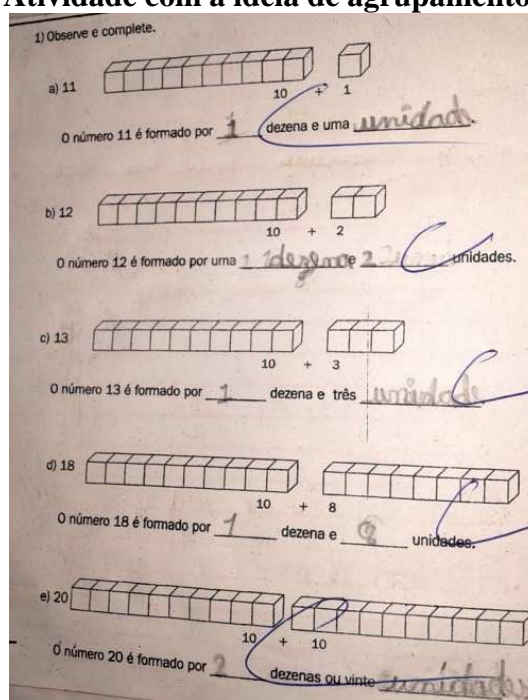 Atividade com a ideia de agrupamento
1) Observe e complete.
a) 11
10 + 1
O número 11 é formado por 1 dezena e uma unidade.
b) 12
10 + 2
O número 12 é formado por uma 1 dezena e 2 unidades.
c) 13
10 + 3
O número 13 é formado por 1 dezena e três unidade
d) 18
10 + 8
O número 18 é formado por 1 dezena e 8 unidades.
e) 20
10 + 10
O número 20 é formado por 2 dezenas ou vinte unidade